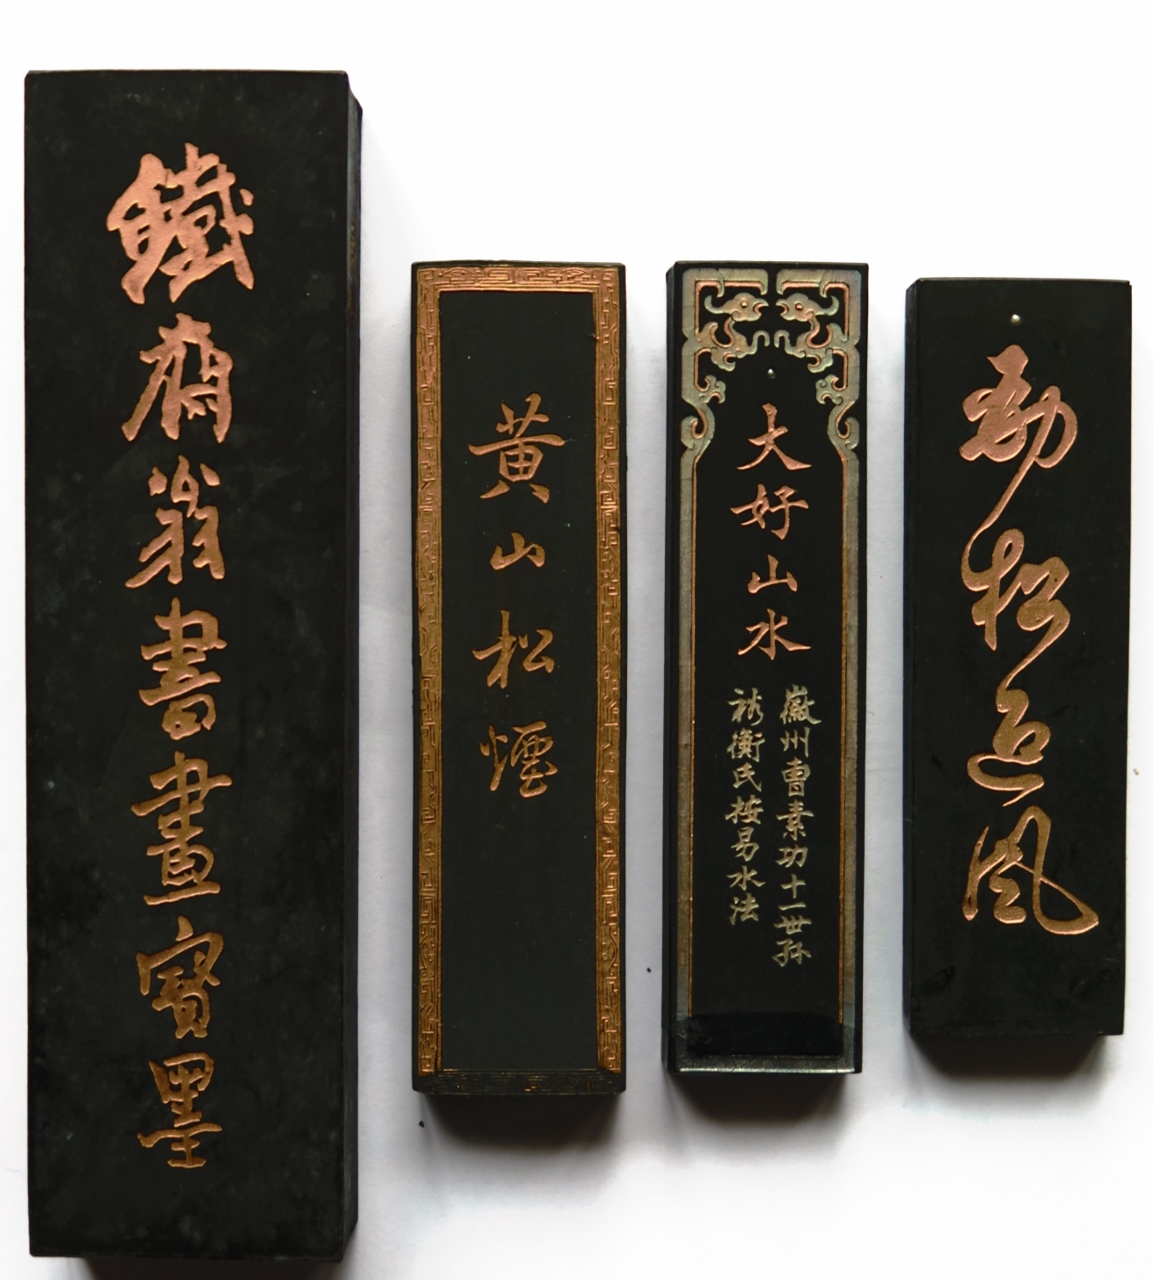 鐵齋翁書畫寶墨
黄山松煙
大好山水
徽州曹素功十一世孫
衡氏按易水法
勁松迎風